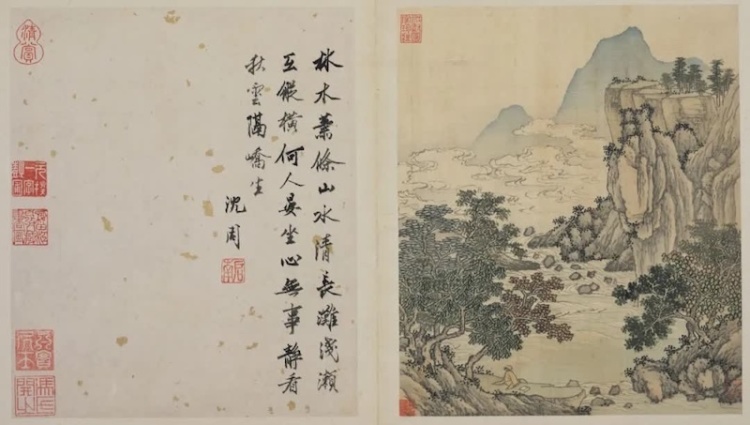 林木蕭條山水清長灘淺瀨
互縱橫何人晏坐心無事靜看
秋雲隔嶠生
沈周